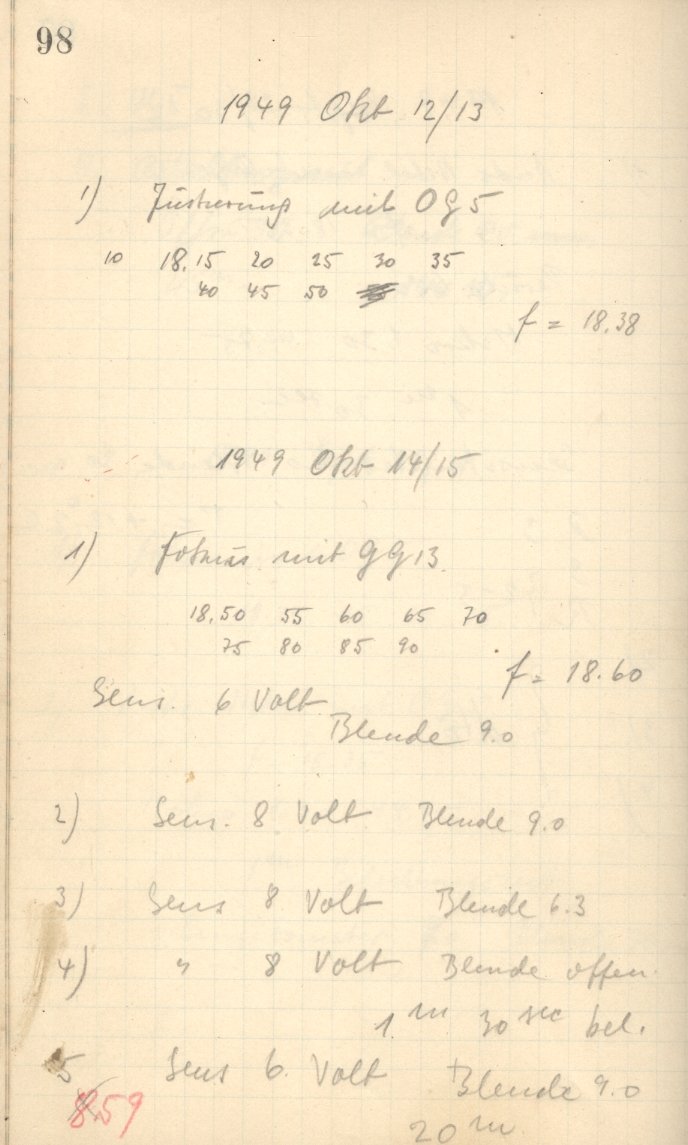 98
1949 Okt 12/13
1) Justierung mit OG5
10 18.15 20 25 30 35
40 45 50
f = 18.38
1949 Okt 14/15
1) Fokus mit GG13
18.50 55 60 65 70
75 80 85 90
f = 18.60
Sens. 6 Volt
Blende 9.0
2) Sens. 8 Volt Blende 9.0
3) Sens 8 Volt Blende 6.3
4) " 8 Volt Blende offen
1 m 30 sec bel.
5 Sens 6. Volt Blende 9.0
859 20 m